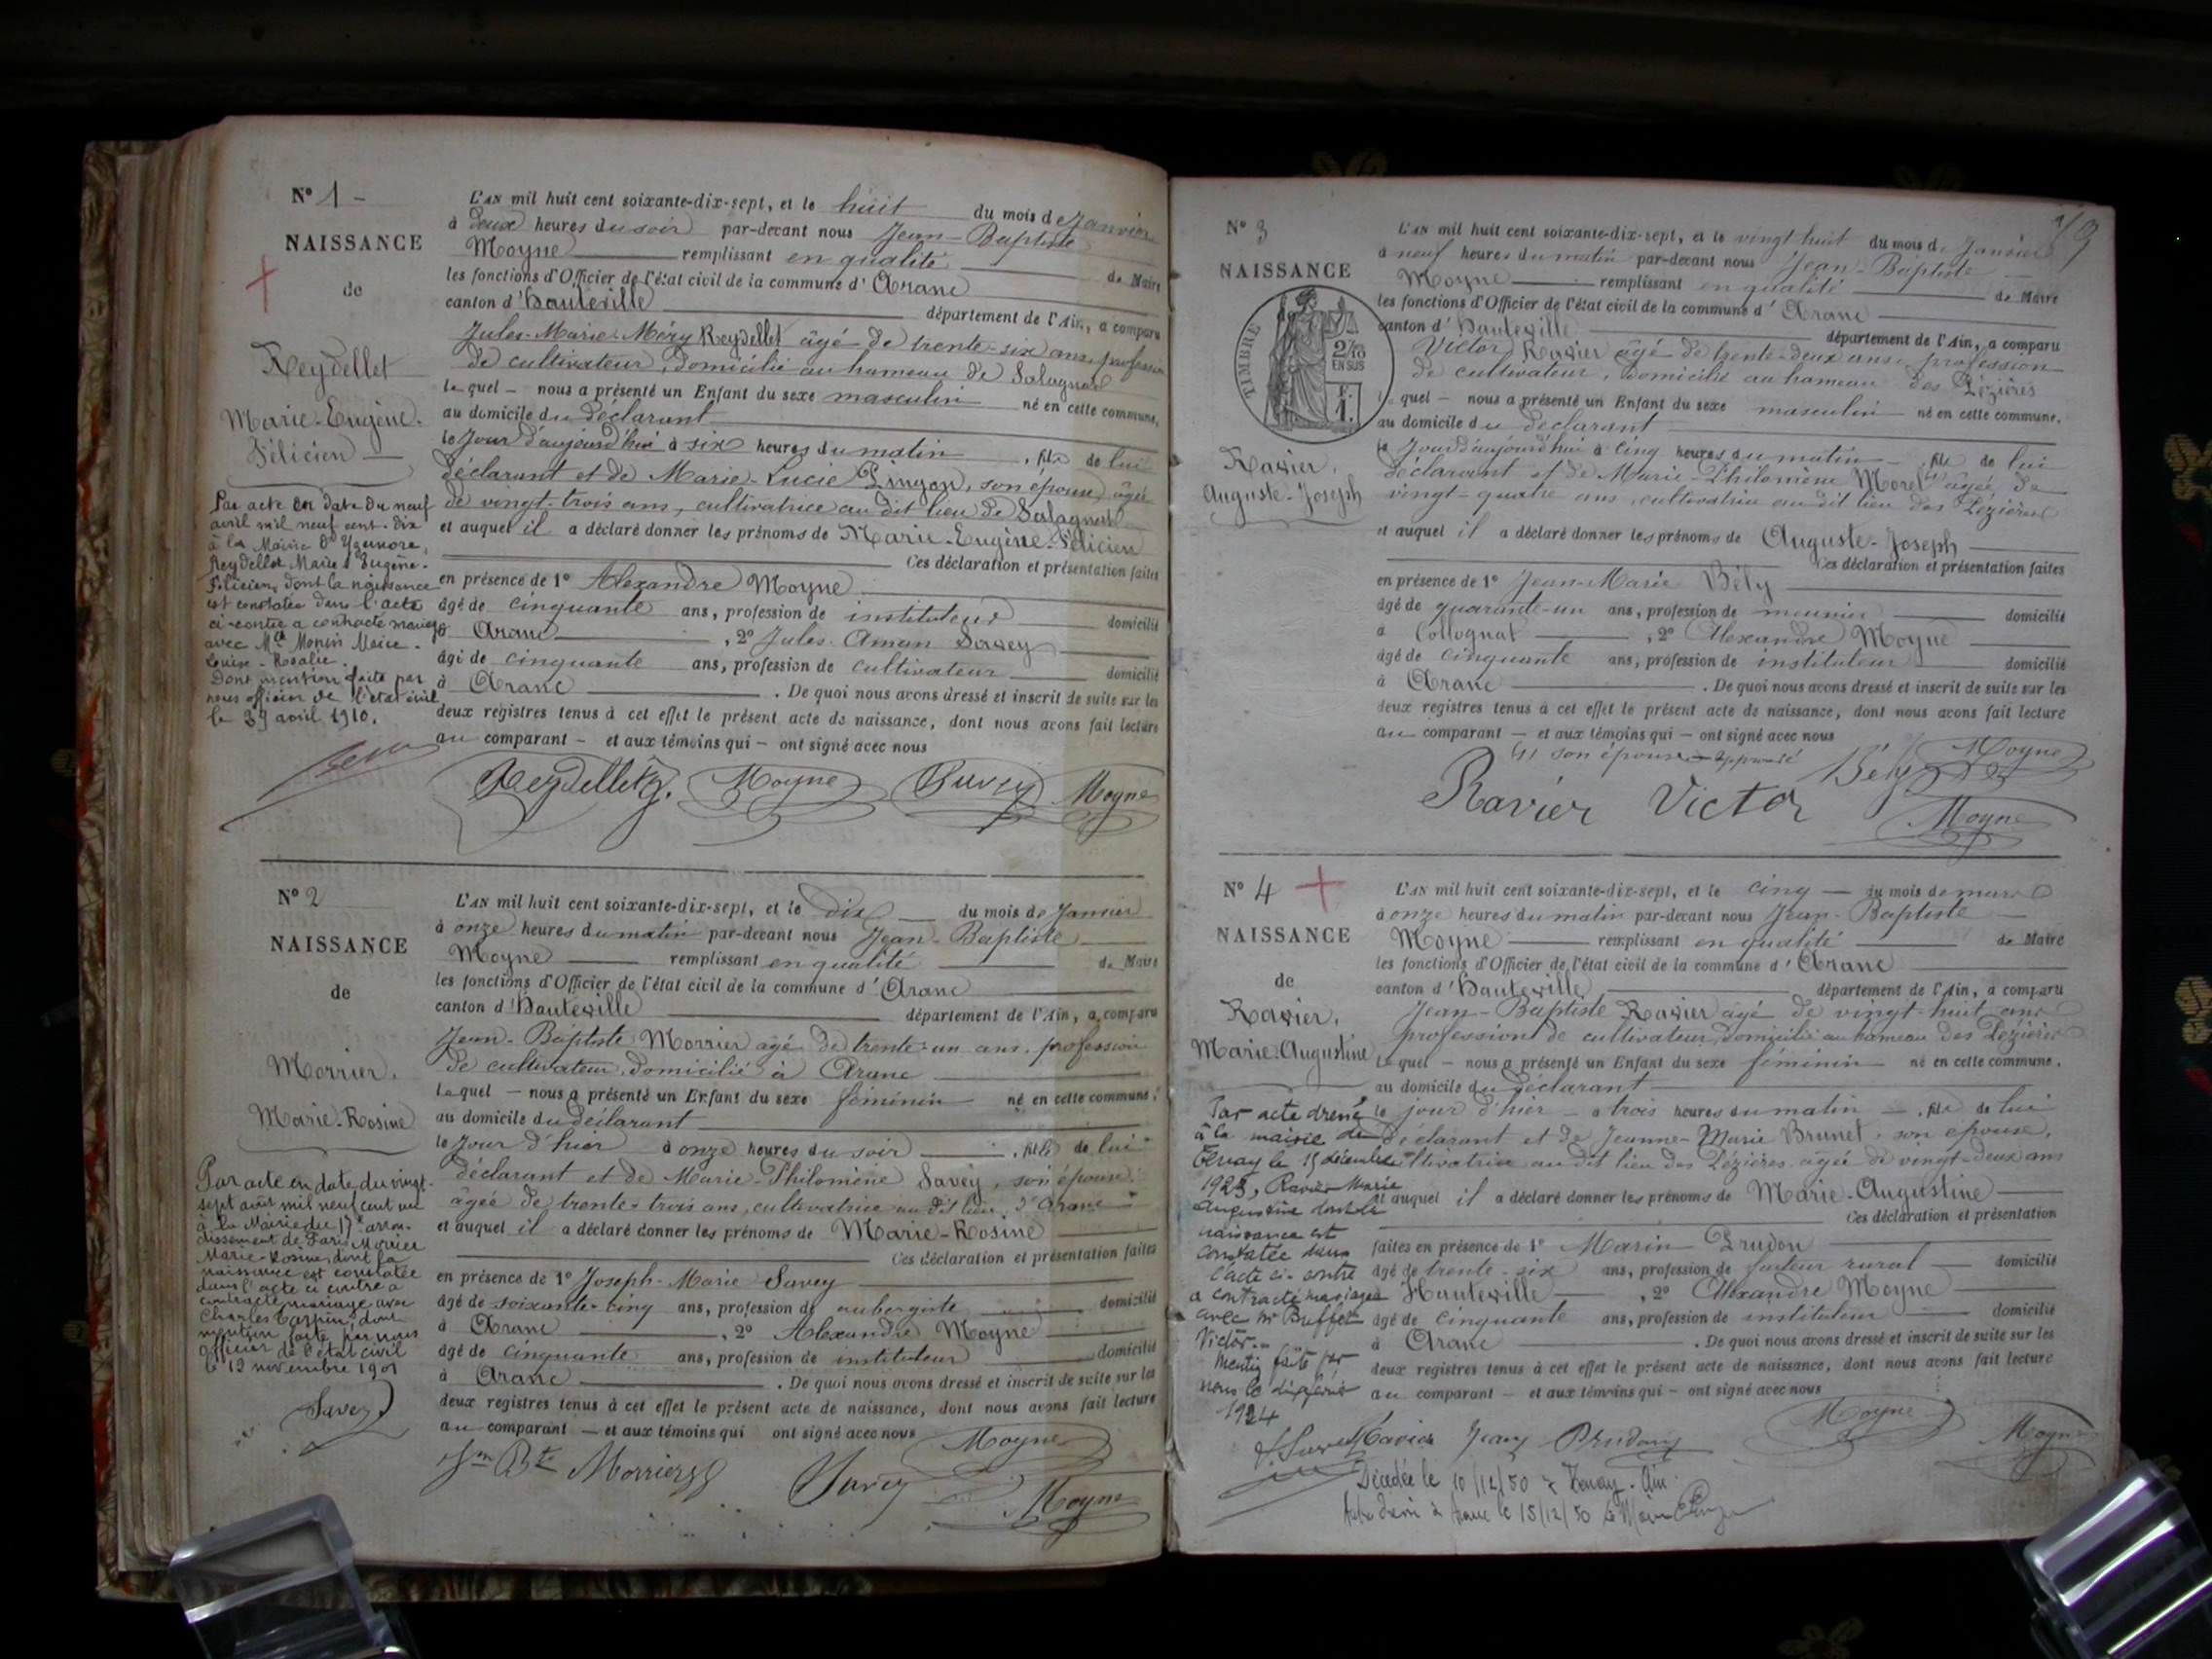 N° 1 -
NAISSANCE
de
Reydellet
Marie-Eugène-
Félicien
Par acte en date du neuf
avril mil neuf cent-dix
à la Mairie d'Yzernore,
Reydellet Marie Eugène-
Félicien, dont la naissance
est constatée dans l'acte
ci-contre a contracté mariage
avec Mlle Monin Marie-
Louise-Rosalie.
Dont mention faite par
nous officier de l'état civil
le avril 1910.
L'AN mil huit cent soixante-dix-sept, et le huit du mois de Janvier
à deux heures du soir par-devant nous Jean-Baptiste
Moyne remplissant en qualité de Maire
les fonctions d'Officier de l'état civil de la commune d'Aranc
canton d'Hauteville département de l'Ain, a comparu
Jules-Marie-Méry Reydellet âgé de trente-six ans, profession
de cultivateur, domicilié au hameau de Salagnat
lequel - nous a présenté un Enfant du sexe masculin né en cette commune,
au domicile du déclarant
le Jour d'aujourd'hui à six heures du matin, fils de lui
déclarant et de Marie-Lucie Pingon, son épouse, âgée
de vingt-trois ans, cultivatrice au dit lieu de Salagnat
et auquel il a déclaré donner les prénoms de Marie-Eugène-Félicien
Ces déclaration et présentation faites
en présence de 1° Alexandre Moyne
âgé de cinquante ans, profession de instituteur domicilié
à Aranc, 2° Jules-Aman Savey
âgé de cinquante ans, profession de cultivateur domicilié
à Aranc. De quoi nous avons dressé et inscrit de suite sur les
deux registres tenus à cet effet le présent acte de naissance, dont nous avons fait lecture
au comparant - et aux témoins qui - ont signé avec nous
Reydellet Moyne Savey Moyne
N° 2
NAISSANCE
de
Morrier.
Marie-Rosine
Par acte en date du vingt-
sept août mil neuf cent un
à la Mairie du 17e arron-
dissement de Paris Morrier
Marie-Rosine, dont la
naissance est constatée
dans l'acte ci contre a
contracté mariage avec
Charles dont
mention faite par nous
officier de l'état civil
le 13 novembre 1901
Savey
L'AN mil huit cent soixante-dix-sept, et le dix du mois de Janvier
à onze heures du matin par-devant nous Jean-Baptiste
Moyne remplissant en qualité de Maire
les fonctions d'Officier de l'état civil de la commune d'Aranc
canton d'Hauteville département de l'Ain, a comparu
Jean-Baptiste Morrier âgé de trente-un ans, profession
de cultivateur, domicilié à Aranc
lequel - nous a présenté un Enfant du sexe féminin né en cette commune,
au domicile du déclarant
le Jour d'hier à onze heures du soir, fille de lui
déclarant et de Marie-Philomène Savey, son épouse,
âgée de trente-trois ans, cultivatrice au dit lieu d'Aranc
et auquel il a déclaré donner les prénoms de Marie-Rosine
Ces déclaration et présentation faites
en présence de 1° Joseph-Marie Savey
âgé de soixante-cinq ans, profession de aubergiste domicilié
à Aranc, 2° Alexandre Moyne
âgé de cinquante ans, profession de instituteur domicilié
à Aranc. De quoi nous avons dressé et inscrit de suite sur les
deux registres tenus à cet effet le présent acte de naissance, dont nous avons fait lecture
au comparant - et aux témoins qui ont signé avec nous
Moyne
Jn Bte Morrier Savey Moyne
N° 3
NAISSANCE
TIMBRE
2/10
EN SUS
F.
1.
Ravier.
Auguste-Joseph
L'AN mil huit cent soixante-dix-sept, et le vingt huit du mois de Janvier
à neuf heures du matin par-devant nous Jean-Baptiste
Moyne remplissant en qualité de Maire
les fonctions d'Officier de l'état civil de la commune d'Aranc
canton d'Hauteville département de l'Ain, a comparu
Victor Ravier âgé de trente-deux ans, profession
de cultivateur, domicilié au hameau des Lézières
lequel - nous a présenté un Enfant du sexe masculin né en cette commune,
au domicile du déclarant
le Jour d'aujourd'hui à cinq heures du matin, fils de lui
déclarant et de Marie-Philomène Morel (1) âgée de
vingt-quatre ans, cultivatrice au dit lieu des Lézières
et auquel il a déclaré donner les prénoms de Auguste-Joseph
Ces déclaration et présentation faites
en présence de 1° Jean-Marie Bély
âgé de quarante-un ans, profession de meunier domicilié
à Collognat, 2° Alexandre Moyne
âgé de cinquante ans, profession de instituteur domicilié
à Aranc. De quoi nous avons dressé et inscrit de suite sur les
deux registres tenus à cet effet le présent acte de naissance, dont nous avons fait lecture
au comparant - et aux témoins qui - ont signé avec nous
(1) son épouse - approuvé
Bély Moyne
Ravier Victor
Moyne
N° 4
NAISSANCE
de
Ravier.
Marie-Augustine
Par acte dressé
à la mairie de
Tenay le 15 décembre
1923, Ravier Marie
Augustine dont la
naissance est
constatée dans
l'acte ci-contre
a contracté mariage
avec Mr Buffet
Victor.-
faite par
nous le
1924
L'AN mil huit cent soixante-dix-sept, et le cinq du mois de mars
à onze heures du matin par-devant nous Jean-Baptiste
Moyne remplissant en qualité de Maire
les fonctions d'Officier de l'état civil de la commune d'Aranc
canton d'Hauteville département de l'Ain, a comparu
Jean-Baptiste Ravier âgé de vingt-huit ans
profession de cultivateur, domicilié au hameau des Lézières
lequel - nous a présenté un Enfant du sexe féminin né en cette commune,
au domicile du déclarant
le jour d'hier - à trois heures du matin, fille de lui
déclarant et de Jeanne-Marie Brunet, son épouse,
cultivatrice au dit lieu des Lézières âgée de vingt-deux ans
et auquel il a déclaré donner les prénoms de Marie-Augustine
Ces déclaration et présentation
faites en présence de 1° Marin Prudon
âgé de trente-six ans, profession de facteur rural domicilié
à Hauteville, 2° Alexandre Moyne
âgé de cinquante ans, profession de instituteur domicilié
à Aranc. De quoi nous avons dressé et inscrit de suite sur les
deux registres tenus à cet effet le présent acte de naissance, dont nous avons fait lecture
au comparant - et aux témoins qui - ont signé avec nous
Moyne
Ravier Jean Prudon Moyne
Décédée le 10/12/50 à Tenay - Ain
à Aranc le 15/12/50 Le Maire